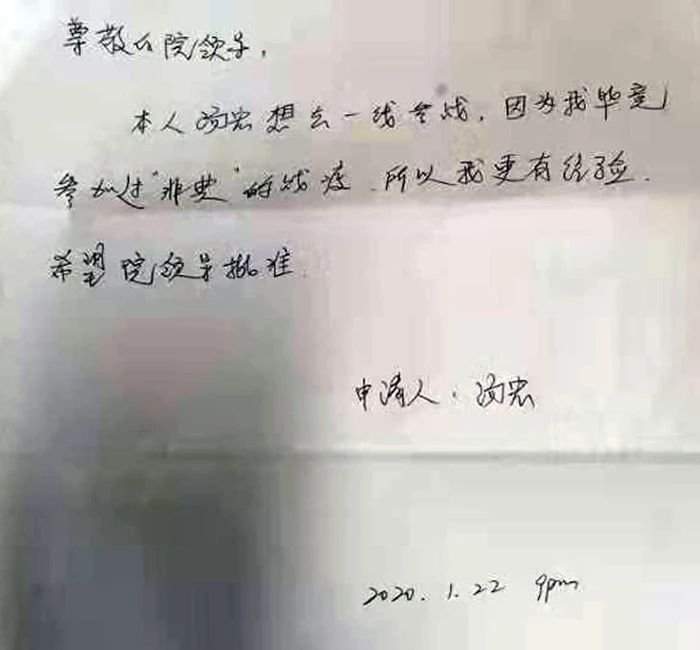 尊敬的院领导，
本人汤宏想去一线参战，因为我毕竟
参加过"非典"的战疫，所以我更有经验．
希望院领导批准．
申请人：汤宏
2020.1.22 9pm